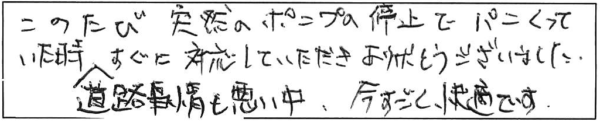 このたび 突然のポンプの停止で パニくって
いた時 すぐに 対応していただき ありがとうございました.
道路事情も悪い中、今すごく快適です.